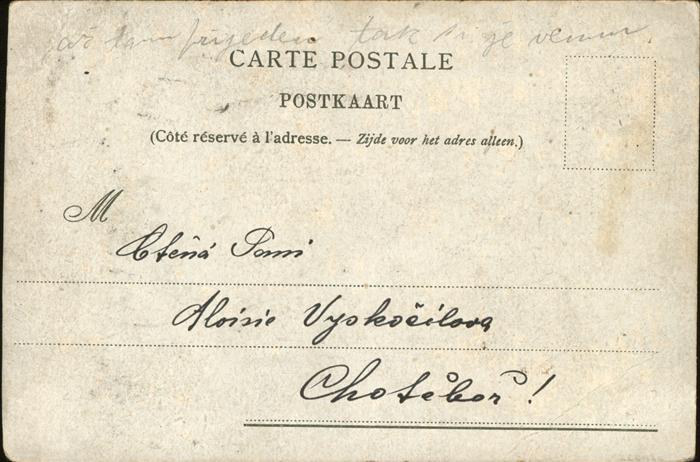 až tam přijedeń tak si je vemu.
CARTE POSTALE
POSTKAART
(Côté réservé à l'adresse. — Zijde voor het adres alleen.)
M
Ctěná Paní
Aloisie Vyskočilova
Chotěboř!